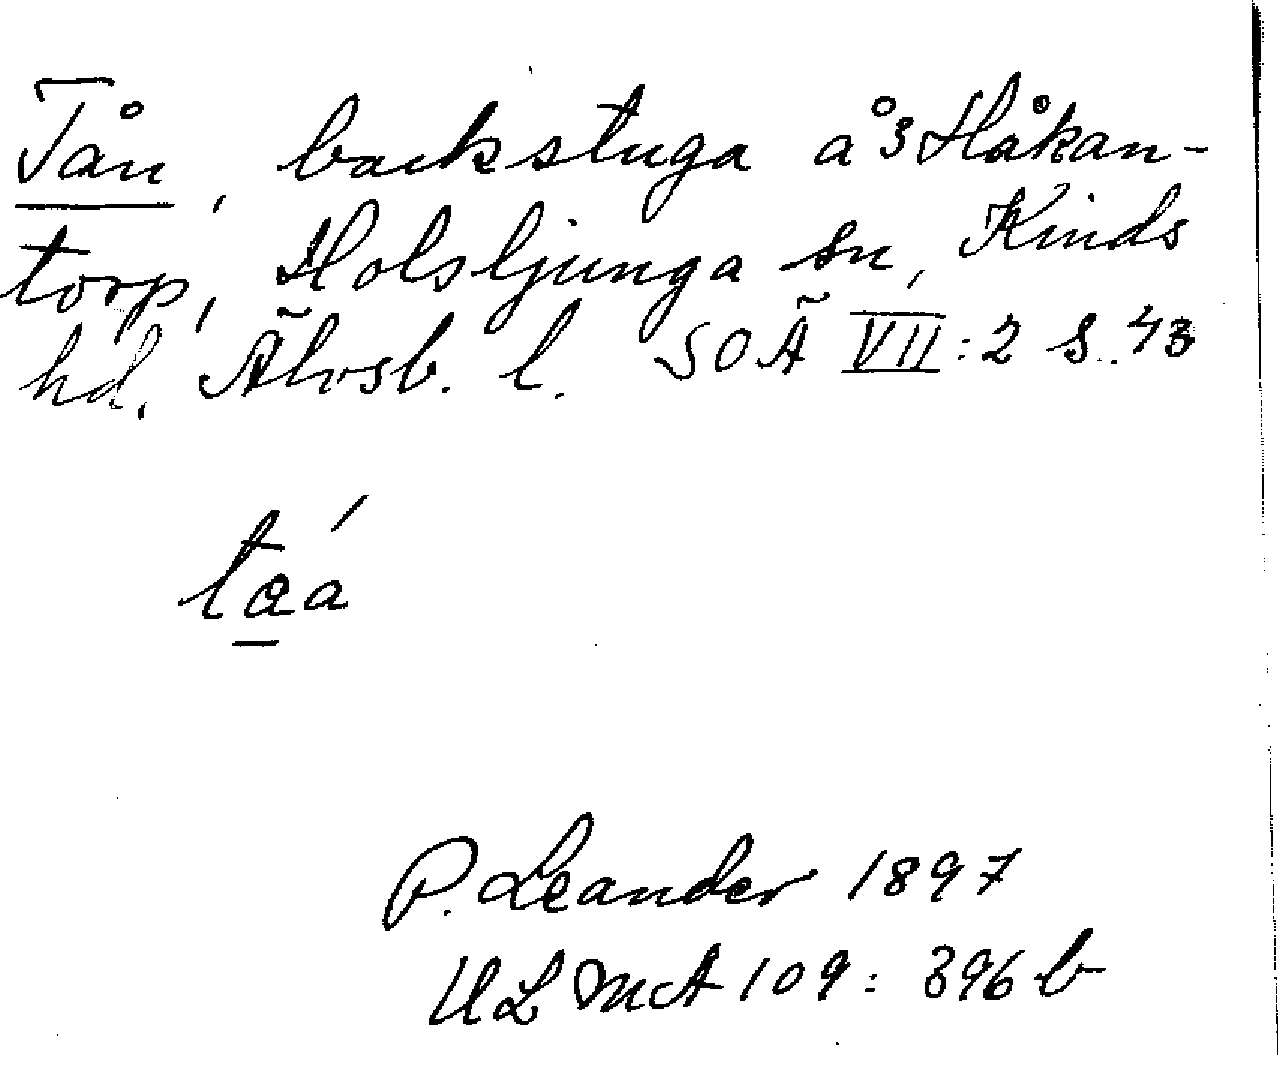 Tån, backstuga å ³ Håkan-
torp, Holsljunga sn, Kinds
hd. Älvsb. l. SOÄ VII:2 S. 43
taá
P. Leander 1897
ULMA 109: 396 b